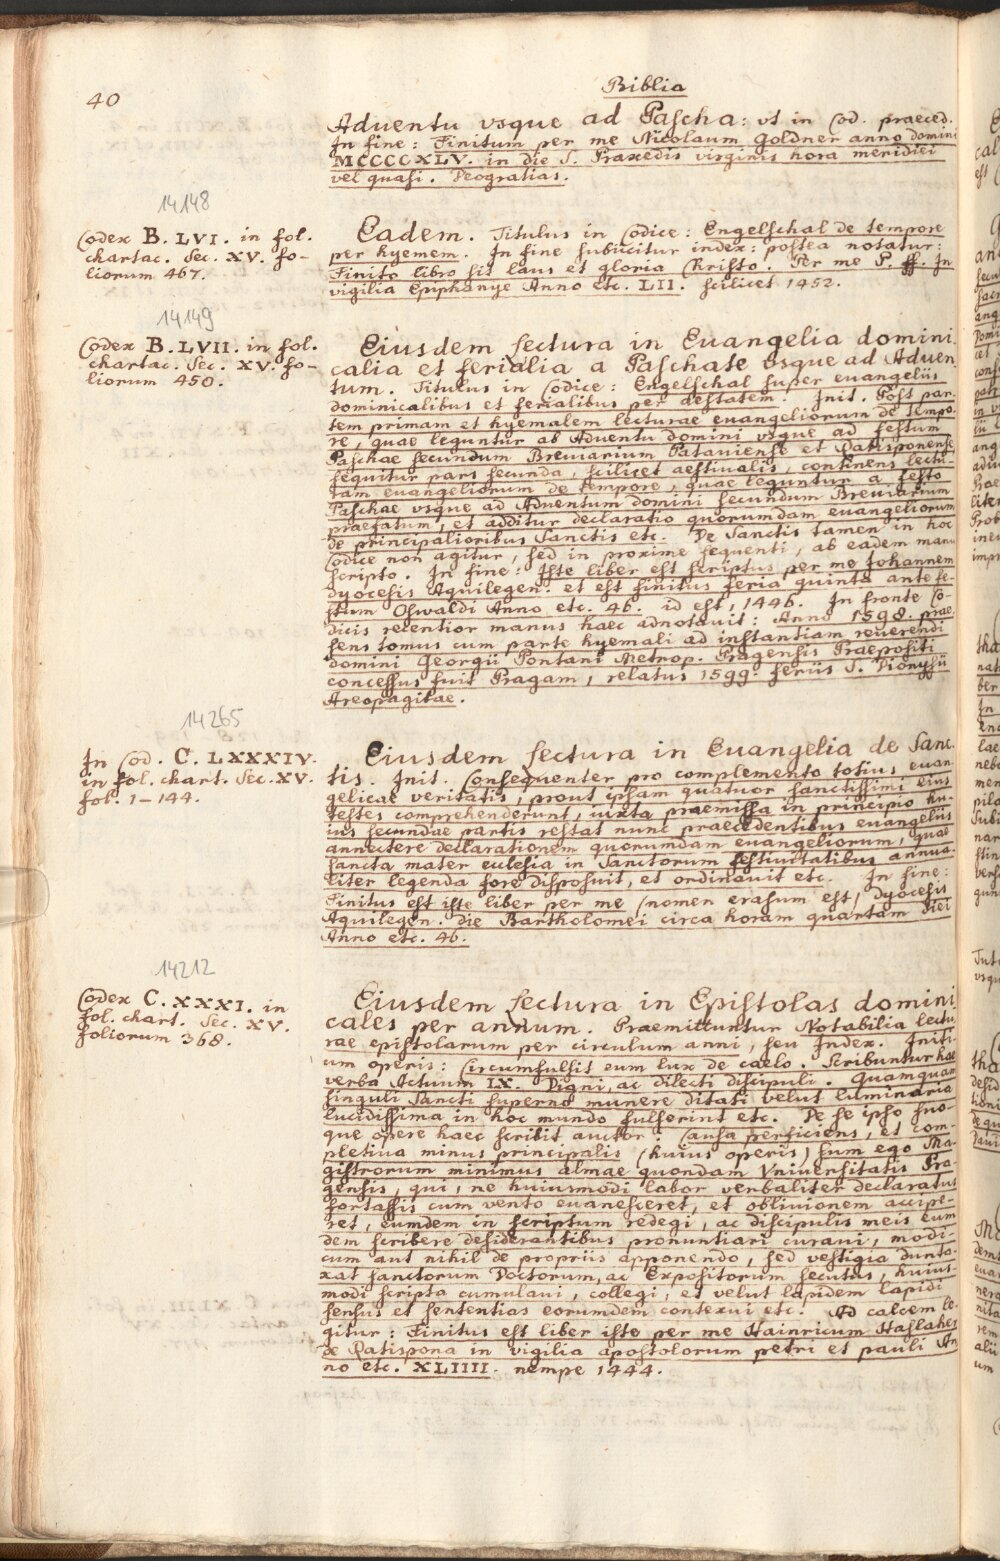 40
Biblia
Adventu vsque ad Pascha: vt in Cod. praeced.
In fine: Finitum per me Nicolaum Goldner anno domini
MCCCCXLV. in die S. Praxedis virginis hora meridiei
vel quasi. Deogratias.
14148
Codex B. LVI. in fol.
chartac. Sec. XV. fo-
liorum 467.
Eadem. Titulus in Codice: Engelschal de tempore
per hyemem. In fine subiicitur index: postea notatur:
Finito libro sit laus et gloria Christo. Per me P. ff. In
vigilia Epiphanye Anno etc. LII. scilicet 1452.
14149
Codex B. LVII. in fol.
chartac. Sec. XV. fo-
liorum 450.
Eiusdem Lectura in Euangelia domini
calia et ferialia a Paschate vsque ad Adven
tum. Titulus in Codice: Engelschal super euangeliis
dominicalibus et ferialibus per aestatem. Init. Post par-
tem primam et hyemalem lecturae euangeliorum de tempo-
re, quae leguntur ab Adventu domini vsque ad festum
Paschae secundum Breviarium Pataviense et Ratisponense,
sequitur pars secunda, scilicet aestivalis, continens lectu-
ram euangeliorum de tempore, quae leguntur a festo
Paschae vsque ad Adventum domini secundum Breviarium
praefatum, et additur declaratio quorumdam euangeliorum
de principalioribus Sanctis etc. De Sanctis tamen in hoc
Codice non agitur, sed in proxime sequenti, ab eadem manu
scripto. In fine: Iste liber est scriptus per me Johannem
dyocesis Aquilegen. et est finitus feria quinta ante fe-
stum Oswaldi Anno etc. 46. id est, 1446. In fronte Co-
dicis recentior manus haec adnotavit: Anno 1598. prae-
sens tomus cum parte hyemali ad instantiam reuerendi
domini Georgii Pontani Metrop. Pragensis Praepositi
concessus fuit Pragam, relatus 1599. feriis S. Dionysii
Areopagitae.
14265
In Cod. C. LXXXIV.
in fol. chart. Sec. XV.
fol. 1-144.
Eiusdem Lectura in Euangelia de Sanc-
tis. Init. Consequenter pro complemento totius euan-
gelicae veritatis, prout ipsam quatuor sanctissimi eius
testes comprehenderunt, iuxta praemissa in principio hu-
ius secundae partis restat nunc praecedentibus euangeliis
annectere declarationem quorumdam euangeliorum, quae
sancta mater ecclesia in Sanctorum festiuitatibus annua-
liter legenda fore disposuit, et ordinauit etc. In fine:
Finitus est iste liber per me (nomen erasum est) Dyocesis
Aquilegen. die Bartholomei circa horam quartam diei
Anno etc. 46.
14212
Codex C. XXXI. in
fol. chart. Sec. XV.
foliorum 368.
Eiusdem Lectura in Epistolas domini
cales per annum. Praemittuntur Notabilia lectu
rae epistolarum per circulum anni, seu Index. Initi-
um operis: Circumfulsit eum lux de caelo. Scribuntur hae
verba Actuum IX. Digni, ac dilecti discipuli. Quamquam
singuli Sancti superno munere ditati velut luminaria
lucidissima in hoc mundo fulserint etc. De se ipso suo-
que opere haec scribit auctor: Causa perficiens, et com-
pletiva minus principalis (huius operis) sum ego Ma-
gistrorum minimus almae quondam Vniversitatis Pra-
gensis, qui, ne huiusmodi labor verbaliter declaratus
fortassis cum vento evanesceret, et oblivionem accipe-
ret, eumdem in scriptum redegi, ac discipulis meis eum
dem scribere desiderantibus pronuntiari curavi, modi-
cum aut nihil de propriis apponendo, sed vestigia dunta-
xat sanctorum Doctorum, ac Expositorum secutus, huius-
modi scripta cumulavi, collegi, et velut lapidem lapidi
sensus et sententias eorumdem contexui etc. Ad calcem le-
gitur: Finitus est liber iste per me Hainricum Haslaher
de Ratispona in vigilia apostolorum petri et pauli An
no etc. XLIIII. nempe 1444.